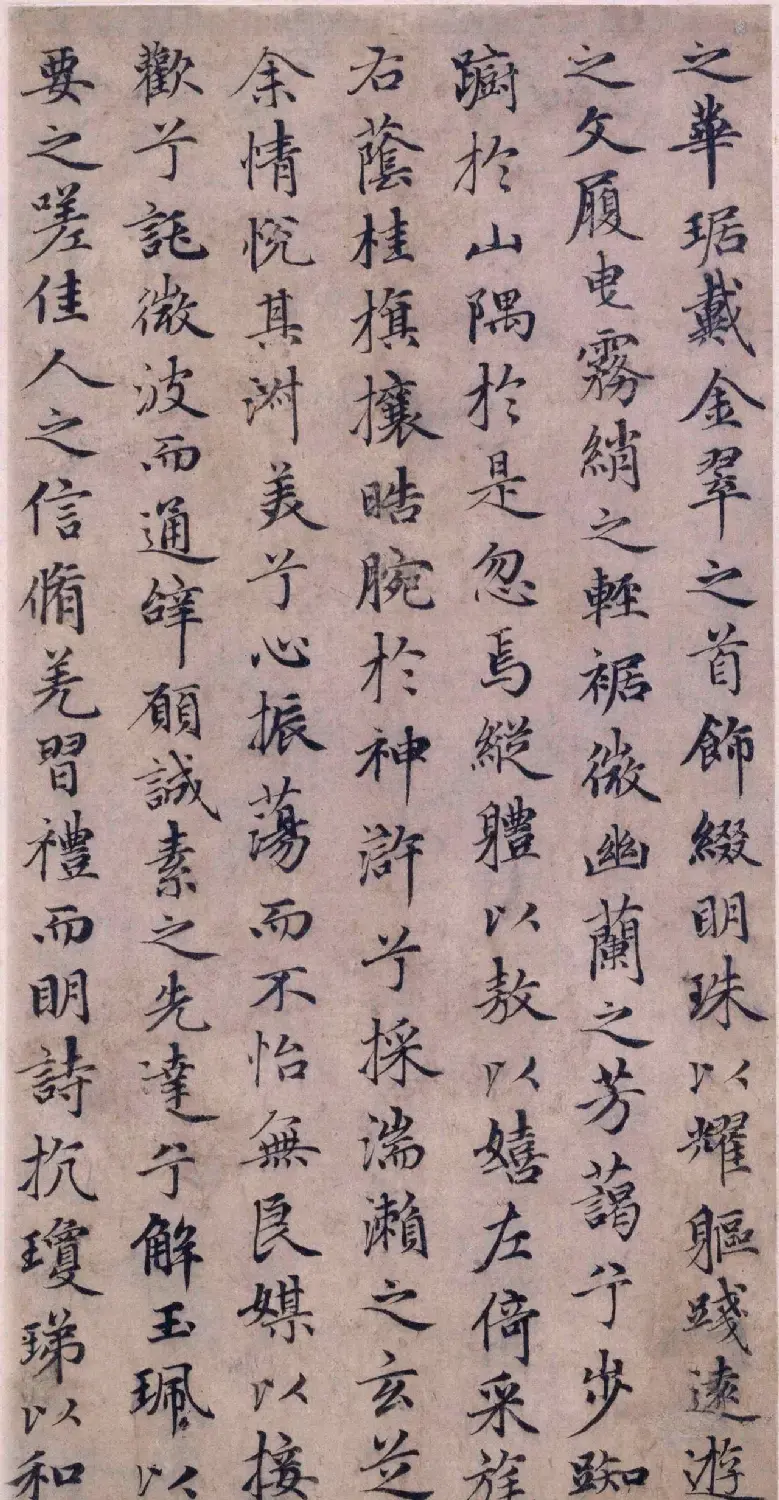 之華琚戴金翠之首飾綴明珠以耀軀踐遠遊
之文履曳霧綃之輕裾微幽蘭之芳藹兮步踟
躕於山隅於是忽焉縱體以敖以嬉左倚采旄
右蔭桂旗攘晧腕於神滸兮採湍瀨之玄芝
余情悅其淑美兮心振蕩而不怡無良媒以接
歡兮託微波而通辭願誠素之先達兮解玉珮以
要之嗟佳人之信脩羌習禮而明詩抗瓊珶以和